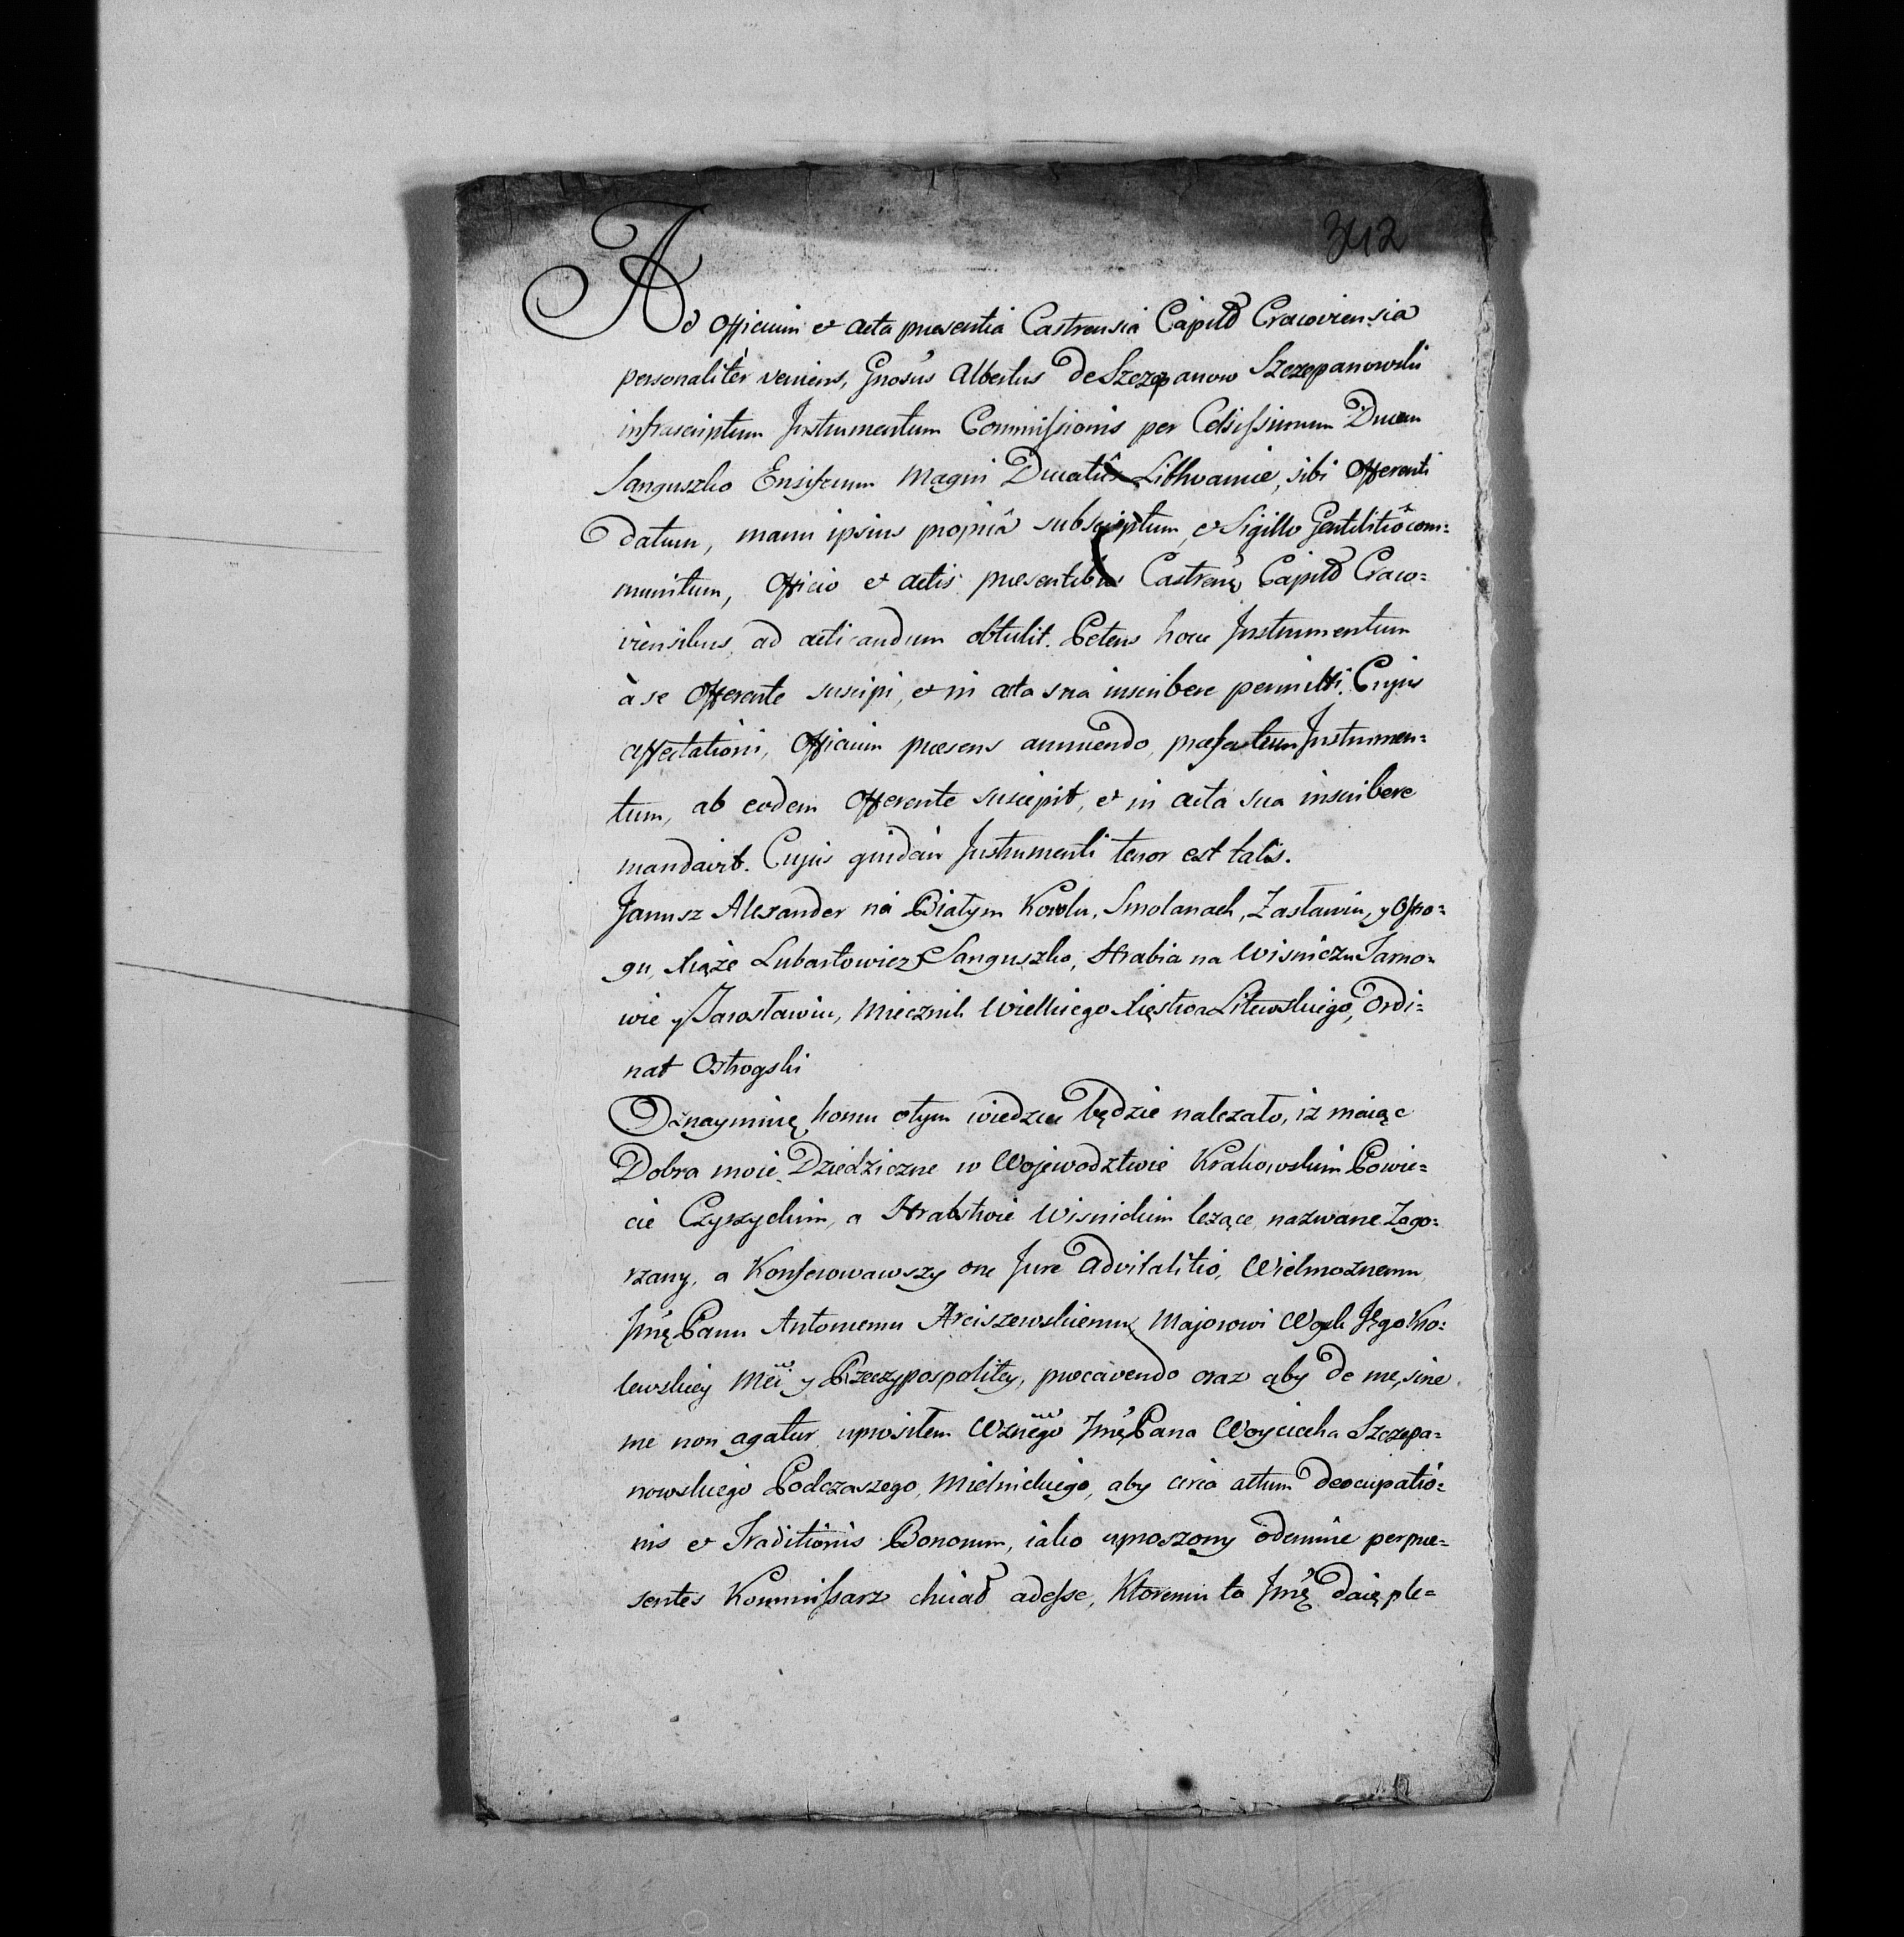 342
Ad Officium et acta præsentia Castrensia Capitł Cracoviensia
personaliter veniens, Gnosus Albertus de Szczepanow Szczepanowski
infrascriptum Instrumentum Commissionis per Celsissimum Ducem
Sanguszko Ensiferum Magni Ducatûs Lithvaniæ, sibi Offerenti
datum, manu ipsius propriâ subscriptum, et Sigillo Gentilitiô com=
munitum, Officio et actis præsentibus Castren, Capitł Craco=
viensibus, ad acticandum obtulit. Petens hocce Instrumentum
à se Offerente suscipi, et in acta sua inscribere permitti. Cujus
affectationi, Officium præsens annuendo, præfactum Instrumen=
tum, ab eodem Offerente suscepit, et in acta sua inscribere
mandavit. Cujus quidem Instrumenti tenor est talis.
Janusz Alexander na Białym Kowlu, Smolanach, Zasławiu, y Ostro=
gu, Xiąże Lubartowicz Sanguszko, Hrabia na Wisniczu Tarno=
wie y Jarosławiu, Miecznik Wielkiego Xięstwa Litewskiego, Ordi=
nat Ostrogski
Oznaymuię, komu otym wiedziec będzie nalezało, iz maiąc
Dobra moie Dziedziczne w Wojewodztwie Krakowskim Powie=
cie Czyszyckim, a Hrabstwie Wisnickim lezące, nazwane Zago=
rzany, a Konferowawszy one Jure Advitalitio, Wielmoznemu
Jmę Panu Antoniemu Arciszewskiemu, Majorowi Woysk Jego Kro=
lewskiey Mci y Rzeczypospolitey, præcavendo oraz aby de me, sine
me non agatur, uprosiłem Wznego Jmę Pana Woyciecha Szczepa=
nowskiego Podczaszego Mielnickiego, aby circa actum deocupatio=
nis et Traditionis Bonorum, iako uproszony odemnie per præ=
sentes Kommissarz chciał adesse, Ktoremu to Jmę daię ple=